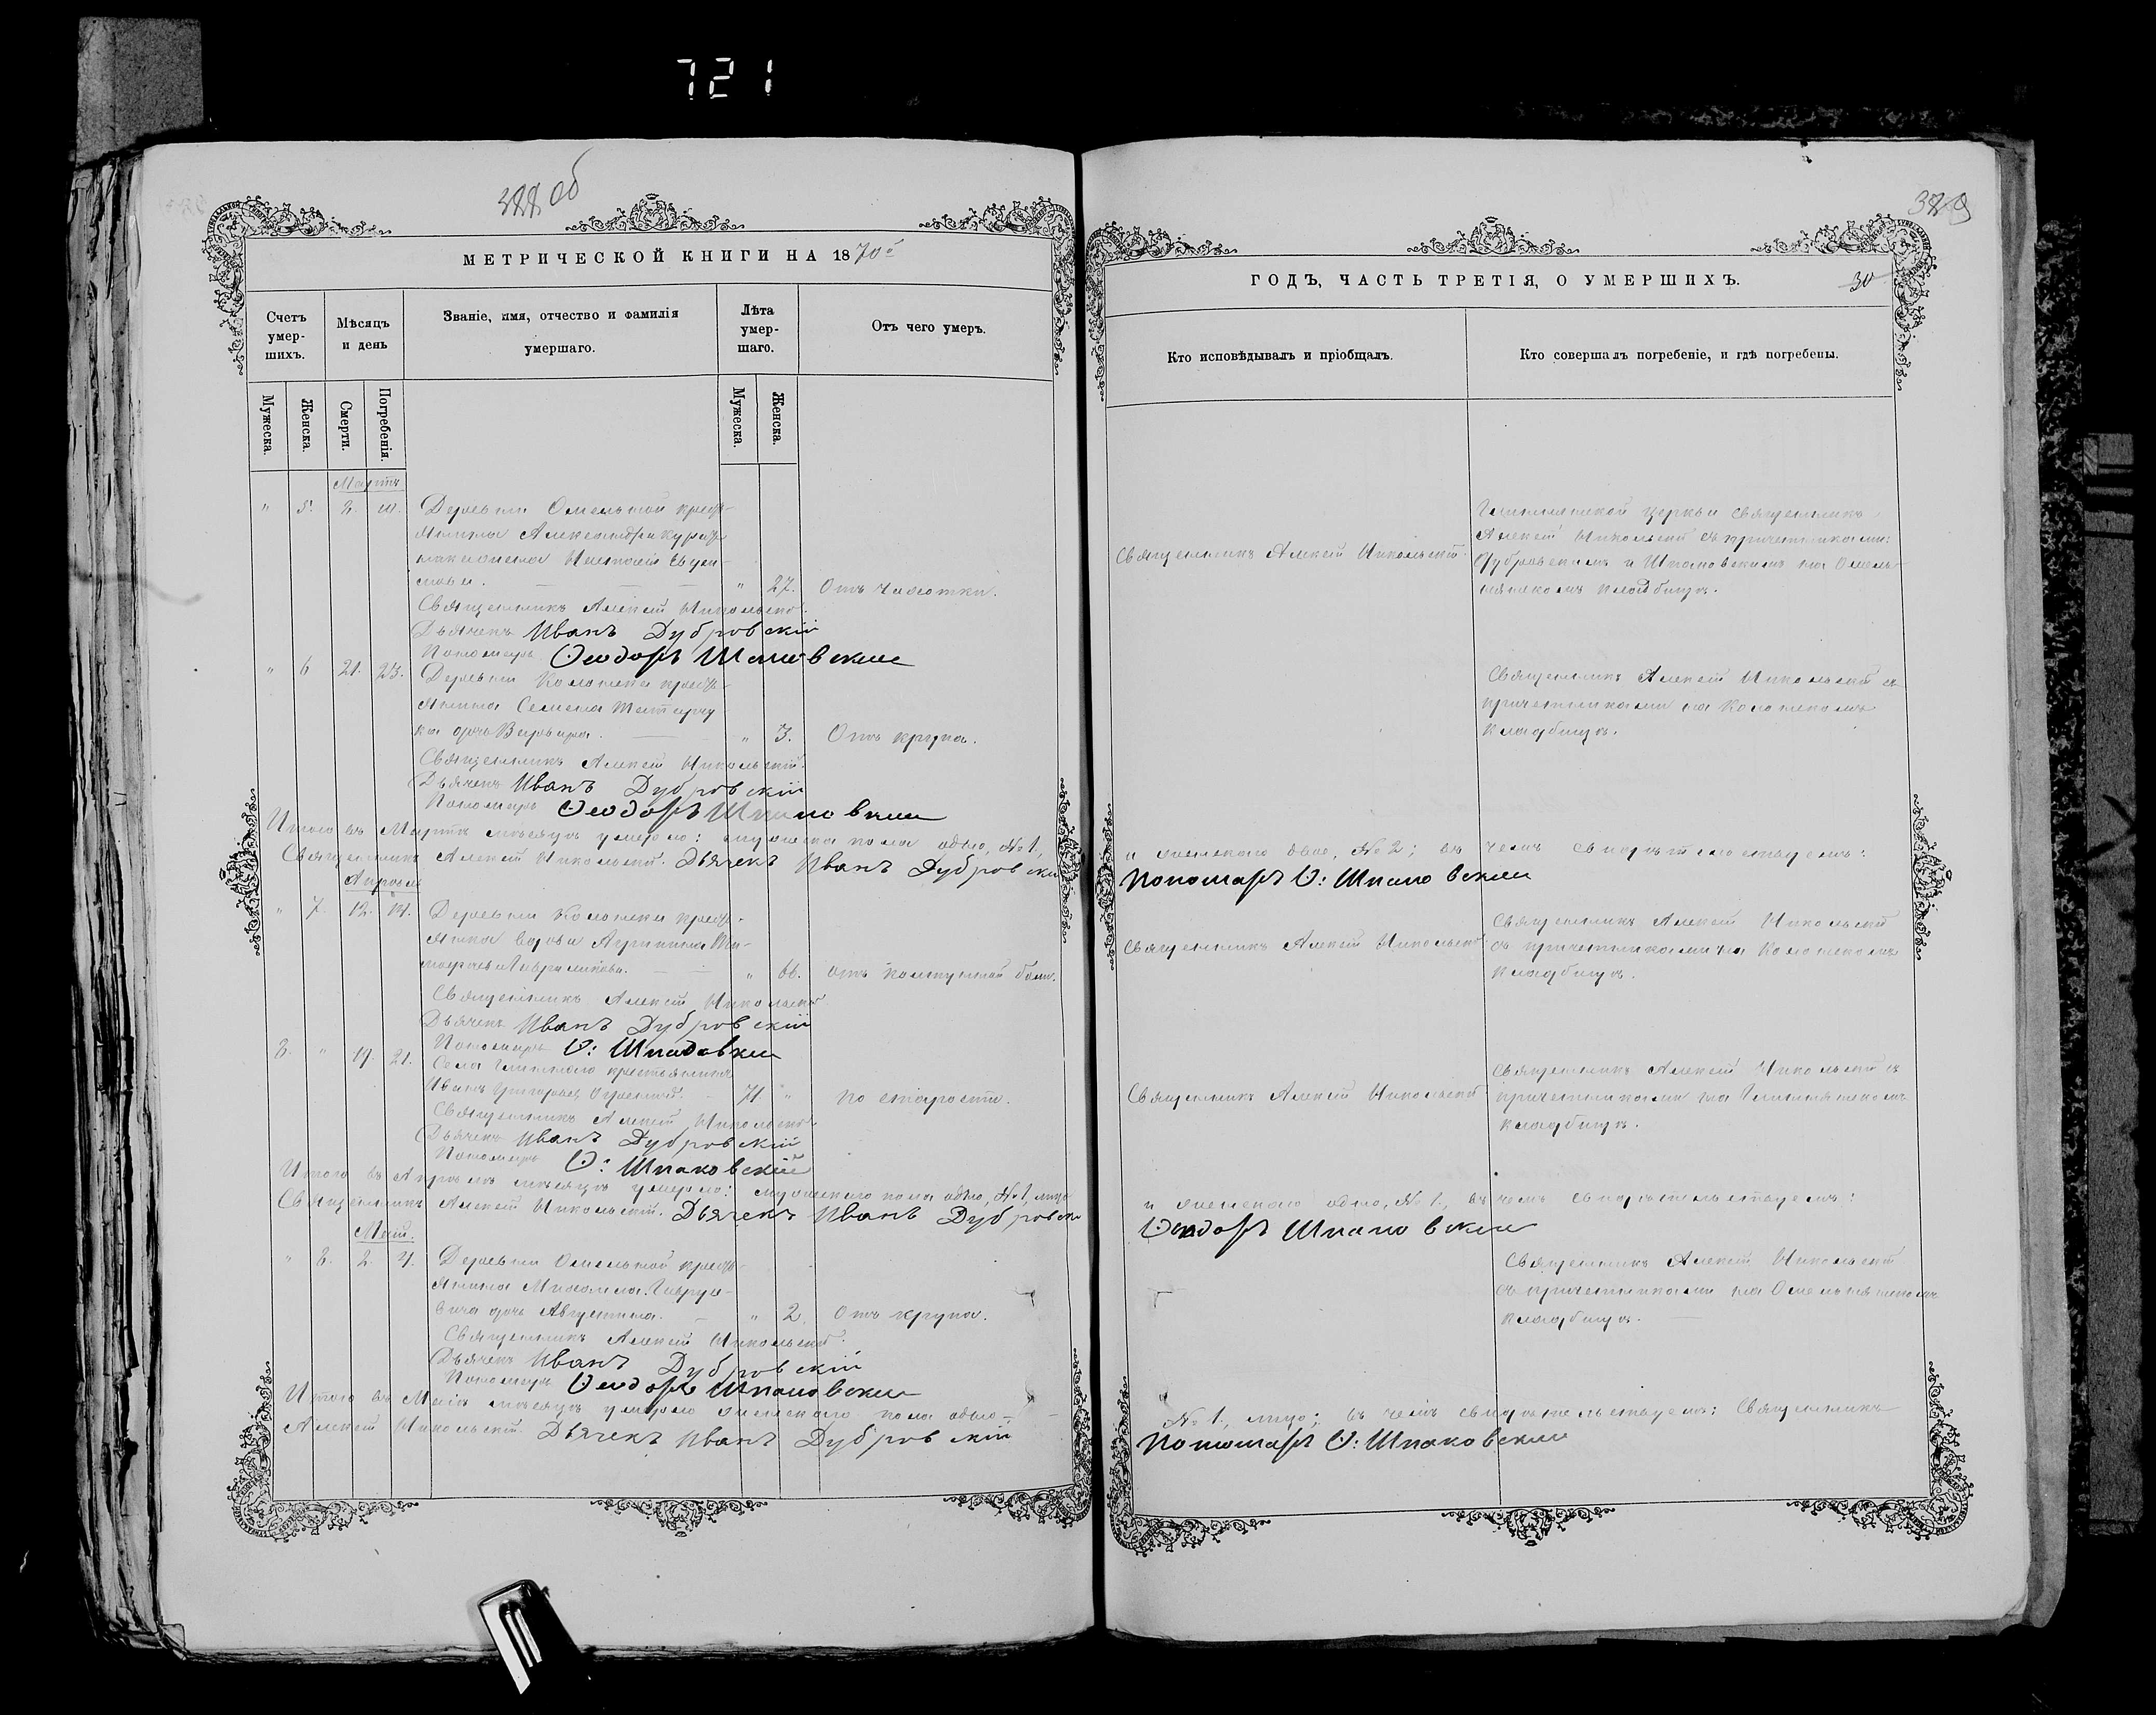 721
322 об
МЕТРИЧЕСКОЙ КНИГИ НА 1870й
Счетъ умер-шихъ.
Мѣсяцъ и день
Званіе, имя, отчество и фамилія умершаго.
Лѣта умер-шаго.
Отъ чего умеръ.
Мужеска.
Женска.
Смерти.
Погребенія.
Мужеска.
Женска.
Мартъ
" 5. 8. 10. Деревни Омельной кресть-
янина Александра
" 27. Отъ чахотки.
Священникъ Алексій Никольскій.
Дьячекъ Иванъ Дубровскій
Пономарь Ѳеодоръ Шпаковскій
" 6 21. 23. Деревни Колонки кресть-
янина Семена
дочь Варвара. " 3. Отъ крупа.
Священникъ Алексій Никольскій.
Дьячекъ Иванъ Дубровскій
Пономарь Ѳеодоръ Шпаковскій
Итого въ Мартѣ мѣсяцѣ умерло: мужеска пола одно, №1,
Священникъ Алексій Никольскій. Дьячекъ Иванъ Дубровскій
Апрѣль
" 7. 12. 14. Деревни Колонки кресть-
янка вдова Агрипина
" 66. отъ
Священникъ Алексій Никольскій
Дьячекъ Иванъ Дубровскій
Пономарь Ѳ: Шпаковскій
8. " 19. 21. Села крестьянинъ
Иванъ Григорьевъ 71. " по старости.
Священникъ Алексій Никольскій
Дьячекъ Иванъ Дубровскій
Пономарь Ѳ: Шпаковскій
Итого въ Апрѣлѣ мѣсяцѣ умерло: мужескаго пола одно, №1, лицо
Священникъ Алексій Никольскій. Дьячекъ Иванъ Дубровскій
Май.
" 8. 2. 4. Деревни Омельной кресть-
янина Михаила Гаври-
вича дочь Августина. " 2. Отъ крупа.
Священникъ Алексій Никольскій.
Дьячекъ Иванъ Дубровскій
Пономарь Ѳеодоръ Шпаковскій
Итого въ Маѣ мѣсяцѣ умерло женскаго пола одно
Алексій Никольскій. Дьячекъ Иванъ Дубровскій
323
ГОДЪ, ЧАСТЬ ТРЕТІЯ, О УМЕРШИХЪ.
30
Кто исповѣдывалъ и пріобщалъ.
Кто совершалъ погребеніе, и гдѣ погребены.
Священникъ Алексій Никольскій.
церкви священникъ
Алексій Никольскій съ причетниками:
Дубровскимъ и Шпаковскимъ на Омель-
нянскомъ кладбищѣ.
Священникъ Алексій Никольскій съ
причетниками на Колонскомъ
кладбищѣ.
и женскаго двое, №2; въ чемъ свидѣтельствуемъ:
Пономарь Ѳ: Шпаковскій
Священникъ Алексій Никольскій
Священникъ Алексій Никольскій
съ причетниками на Колонскомъ
кладбищѣ.
Священникъ Алексій Никольскій
Священникъ Алексій Никольскій съ
причетниками на
кладбищѣ.
и женскаго одно, №1, въ чемъ свидѣтельствуемъ:
Ѳеодоръ Шпаковскій
Священникъ Алексій Никольскій
съ причетниками на Омельнянскомъ
кладбищѣ.
№1, лицо; въ чемъ свидѣтельствуемъ: Священникъ
Пономарь Ѳ: Шпаковскій